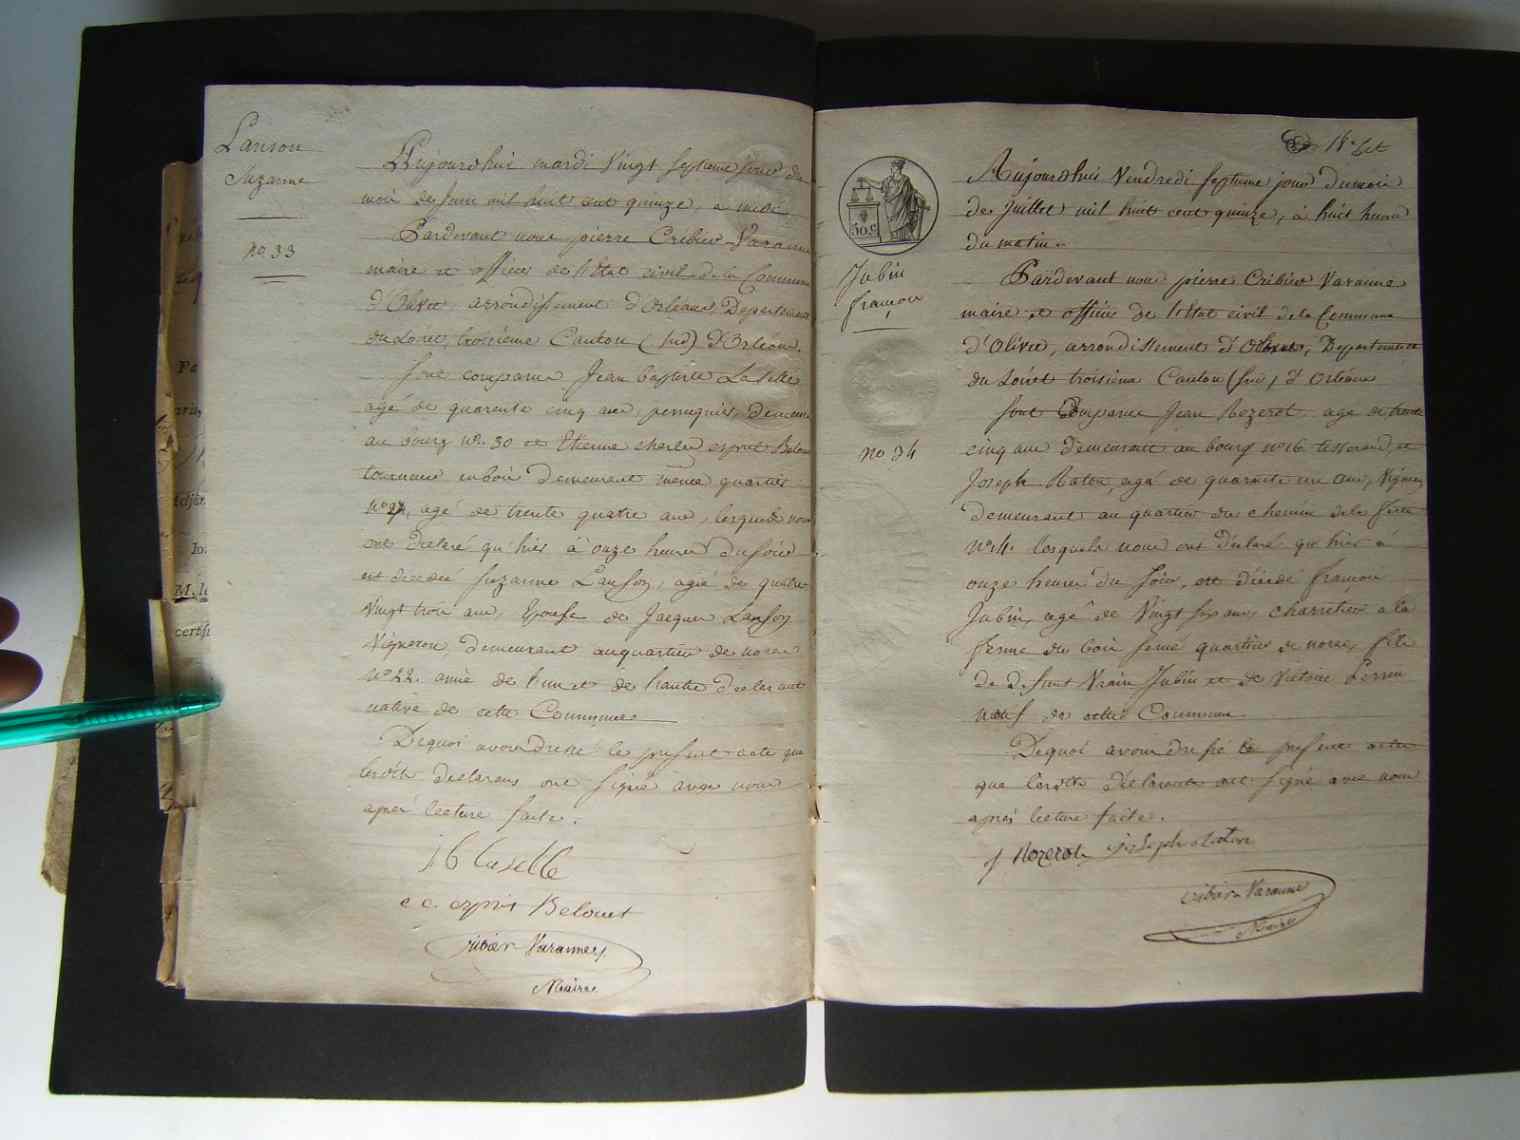 Lanson
Suzanne
no 33
Aujourdhui mardi vingt septieme jour du
mois de juin mil huit cent quinze, a midi
Pardevant nous pierre Cribier Varanne
maire et officier de l'Etat civil de la Commune
d'Olivet, arrondissement d'Orléans, Departement
du Loiret, troisième Canton (sud) d'Orléans.
sont comparus Jean baptiste Laselle
agé de quarante cinq ans, perruquier, demeurant
au bourg no. 30 et Etienne charles esprit Belouet
tourneur en bois demeurant même quartier
no 27, agé de trente quatre ans, lesquels nous
ont déclaré qu'hier à onze heures du soir
est décédée suzanne Lanson, agée de quatre
vingt trois ans, Epouse de Jacques Lanson
Vigneron, demeurant au quartier de
no 22. amie de l'un et de l'autre déclarant
native de cette Commune
Dequoi avons dressé le présent acte que
lesdits declarans ont signé avec nous
après lecture faite.
J b Laselle
e c esprit Belouet
cribier Varanne
Maire
Aujourdhui Vendredi septieme jour du mois
de Juillet mil huit cent quinze, à huit heures
du matin.
50 C
Jubin
francois
no 34
Pardevant nous pierre Cribier Varanne
maire et officier de l'Etat civil de la Commune
d'Olivet, arrondissement d'Orléans, Departement
du Loiret troisième Canton (sud) d'Orléans
sont Comparus Jean Rozerot agé de trente
cinq ans demeurant au bourg no 16 tisserand, et
Joseph Raton, agé de quarante un ans, Vigneron
demeurant au quartier du chemin de la ferté
no 14. lesquels nous ont déclaré qu'hier à
onze heures du soir, est décédé francois
Jubin, agé de vingt six ans, charretier a la
ferme du bois semé quartier de, fils
de défunt Vrain Jubin et de Victoire Perrin
natif de cette Commune
Dequoi avons dressé le présent acte
que lesdits déclarants ont signé avec nous
après lecture faite.
J Rozerot joseph raton
cribier Varanne
Maire